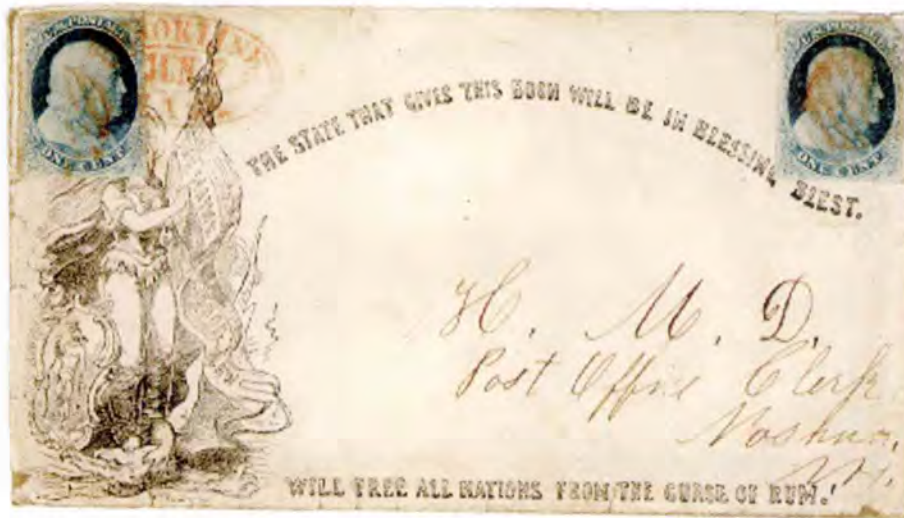 U.S. POSTAGE
ONE CENT
U.S. POSTAGE
ONE CENT
THE STATE THAT GIVES THIS BOON WILL BE IN BLESSING BLEST.
H. M. D.
Post Office Clerk
Nashua,
WILL FREE ALL NATIONS FROM THE CURSE OF RUM.